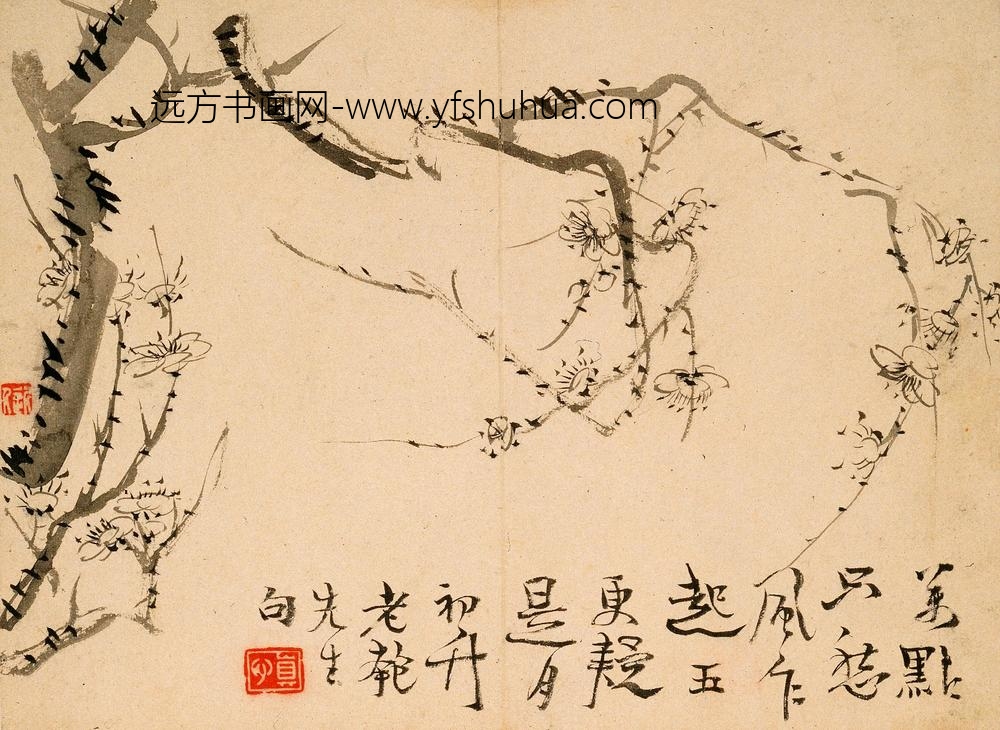 远方书画网-www.yfshuhua.com
萬點
只愁
風乍
起五
更疑
是月
初升
老匏
先生
句